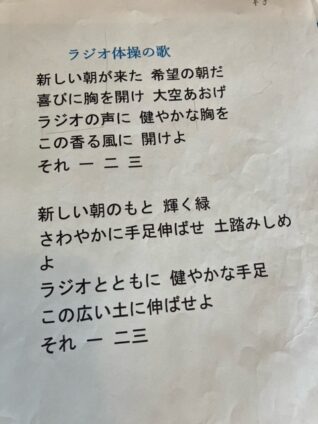 ラジオ体操の歌
新しい朝が来た 希望の朝だ
喜びに胸を開け 大空あおげ
ラジオの声に 健やかな胸を
この香る風に 開けよ
それ 一 二 三
新しい朝のもと 輝く緑
さわやかに手足伸ばせ 土踏みしめ
よ
ラジオとともに 健やかな手足
この広い土に伸ばせよ
それ 一 二三